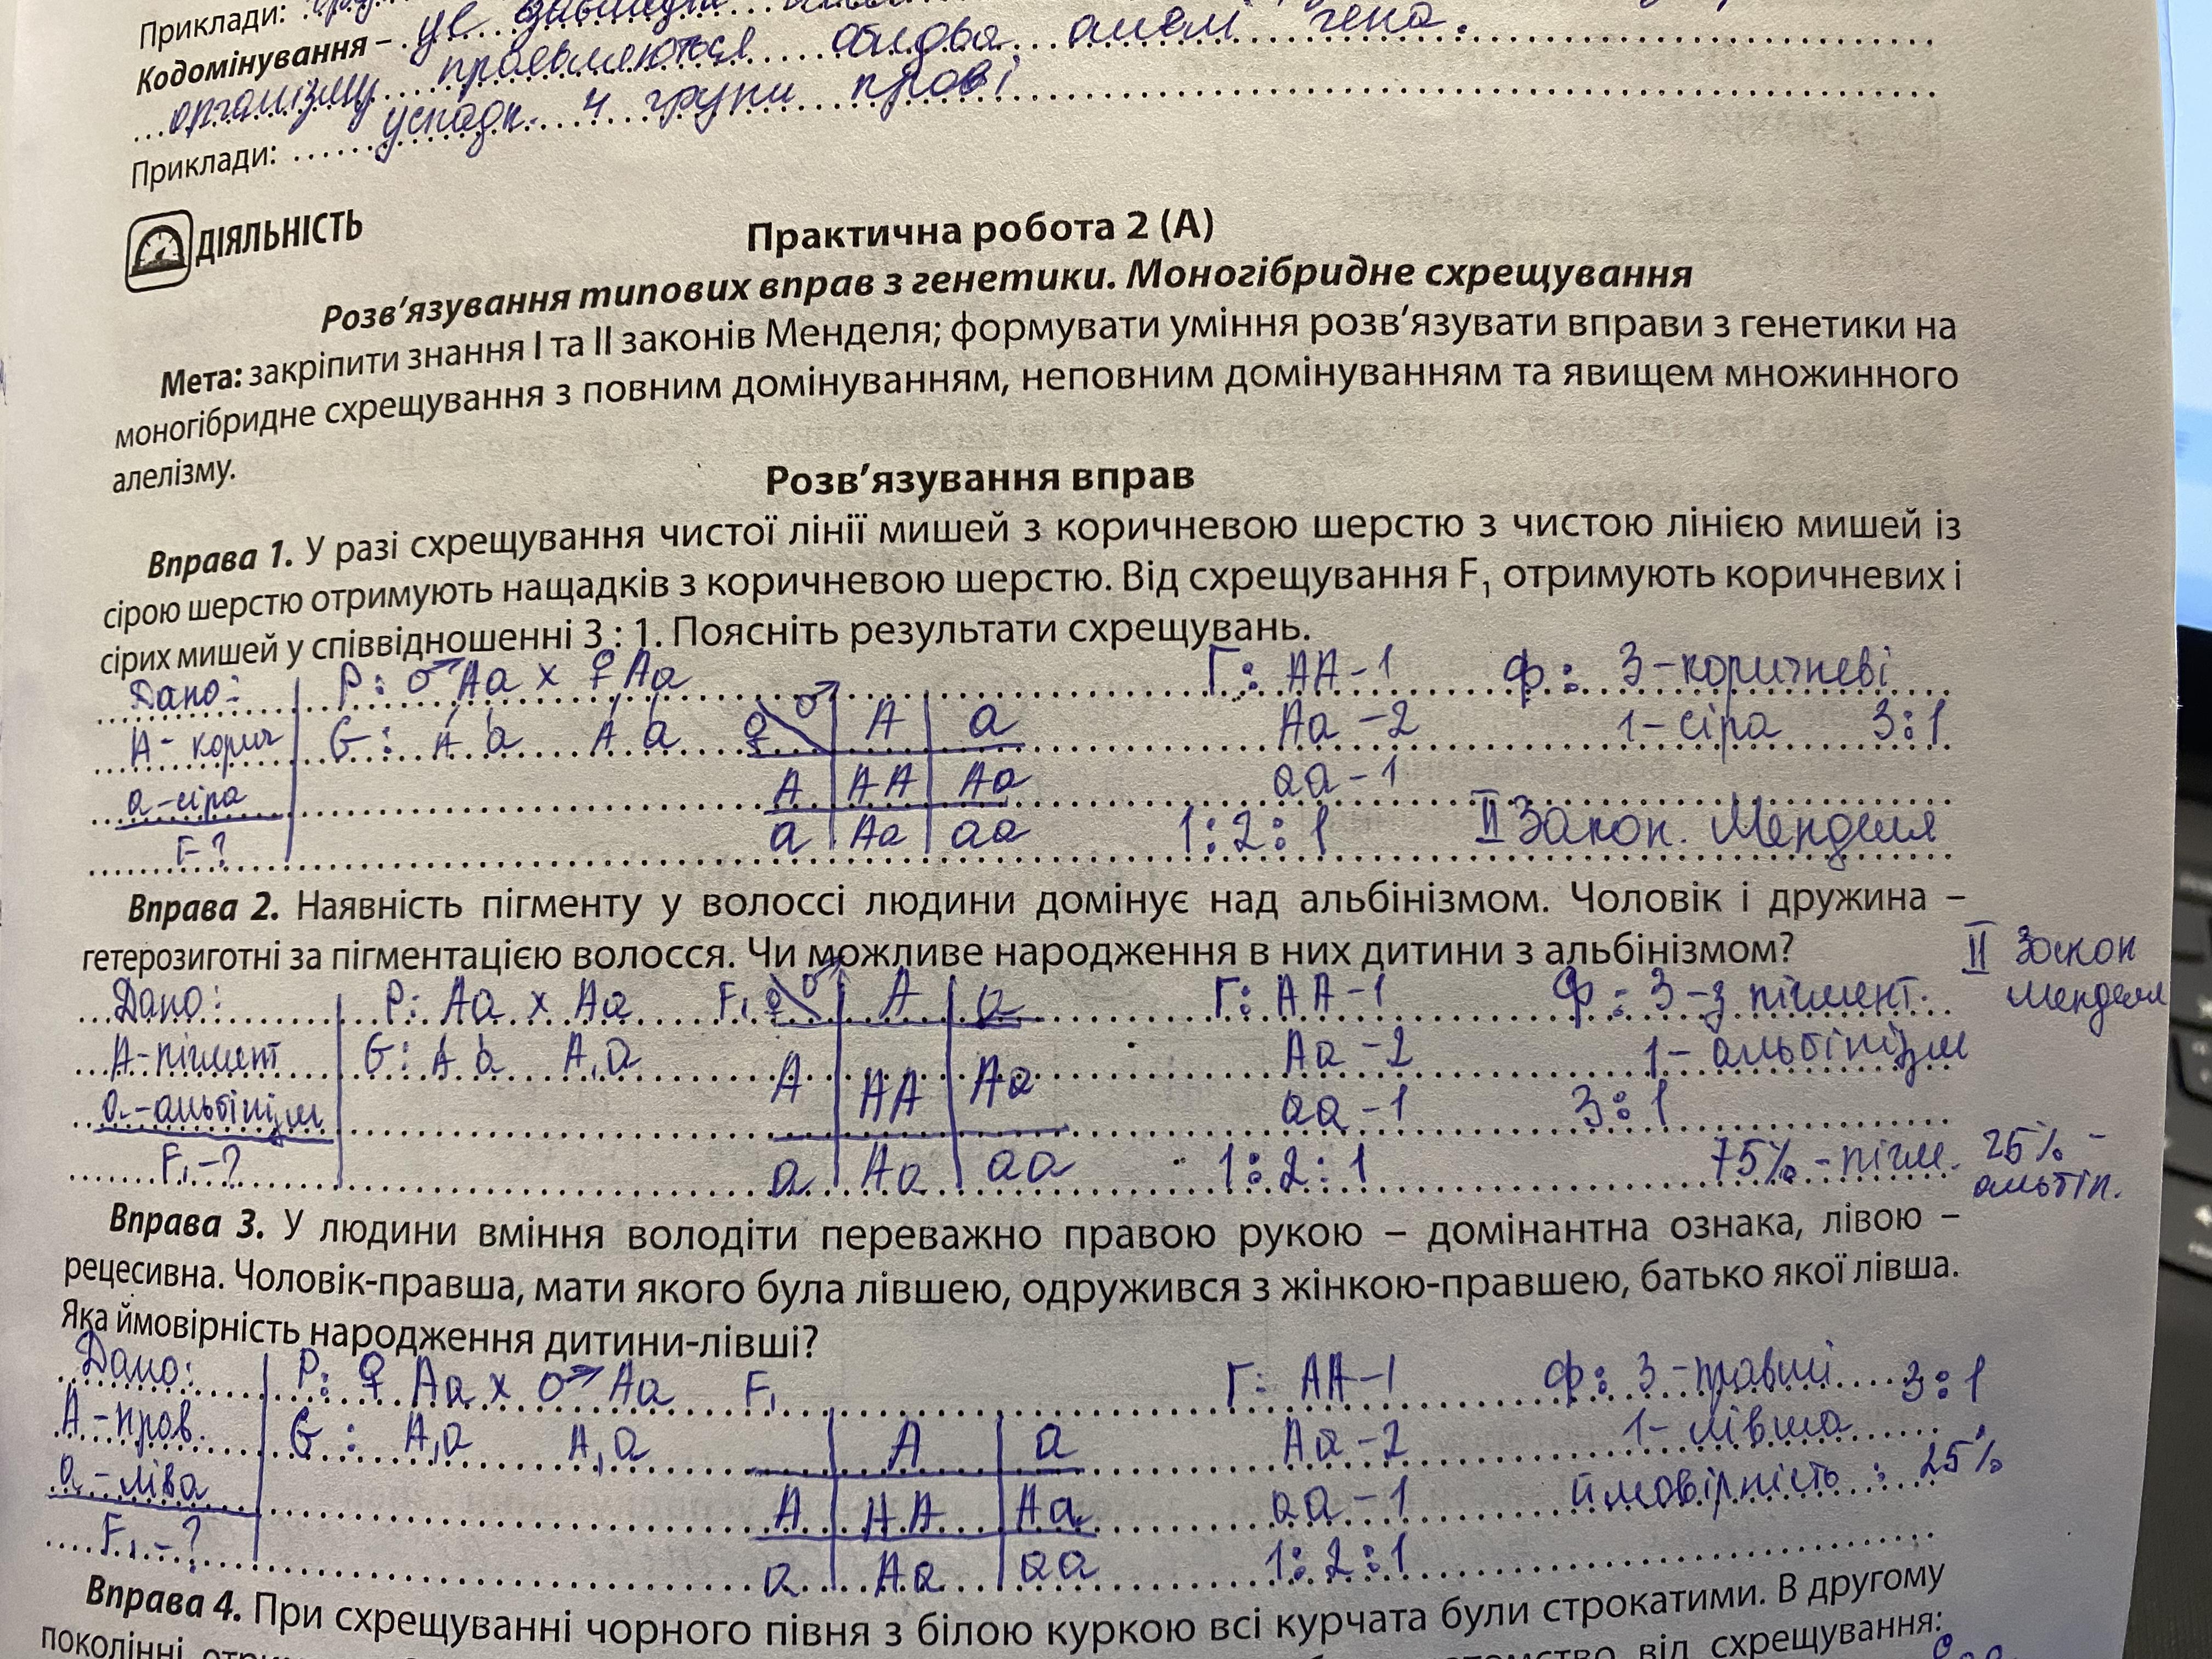 Приклади:
Кодомінування – це
організму проявляються обидва алелі гена.
Приклади: успадк. 4 групи крові
ДІЯЛЬНІСТЬ
Практична робота 2 (А)
Розв’язування типових вправ з генетики. Моногібридне схрещування
Мета: закріпити знання І та ІІ законів Менделя; формувати уміння розв’язувати вправи з генетики на
моногібридне схрещування з повним домінуванням, неповним домінуванням та явищем множинного
алелізму.
Розв’язування вправ
Вправа 1. У разі схрещування чистої лінії мишей з коричневою шерстю з чистою лінією мишей із
сірою шерстю отримують нащадків з коричневою шерстю. Від схрещування F₁ отримують коричневих і
сірих мишей у співвідношенні 3 : 1. Поясніть результати схрещувань.
Дано: P: ♂ Aa x ♀ Aa Г: AA – 1 Ф: 3 – коричневі
A – корич G: A a A a ♀ ♂ A a Aa – 2 1 – сіра 3:1
a – сіра A AA Aa aa – 1
F – ? a Aa aa 1:2:1 II Закон. Менделя
Вправа 2. Наявність пігменту у волоссі людини домінує над альбінізмом. Чоловік і дружина –
гетерозиготні за пігментацією волосся. Чи можливе народження в них дитини з альбінізмом?
II Закон
Менделя
Дано: P: Aa x Aa F₁ ♀ ♂ A a Г: AA – 1 Ф: 3 – з пігмент.
A – пігмент G: A a A, a A AA Aa Aa – 2 1 – альбінізм
a – альбінізм aa – 1 3:1
F₁ – ? a Aa aa 1:2:1 75% – пігм. 25% –
альбін.
Вправа 3. У людини вміння володіти переважно правою рукою – домінантна ознака, лівою –
рецесивна. Чоловік-правша, мати якого була лівшею, одружився з жінкою-правшею, батько якої лівша.
Яка ймовірність народження дитини-лівші?
Дано: P: ♀ Aa x ♂ Aa F₁ Г: AA – 1 Ф: 3 – правші 3:1
A – прав. G: A, a A, a A a Aa – 2 1 – лівша
a – ліва A AA Aa aa – 1 ймовірність : 25%
F₁ – ? a Aa aa 1:2:1
Вправа 4. При схрещуванні чорного півня з білою куркою всі курчата були строкатими. В другому
поколінні від схрещування: